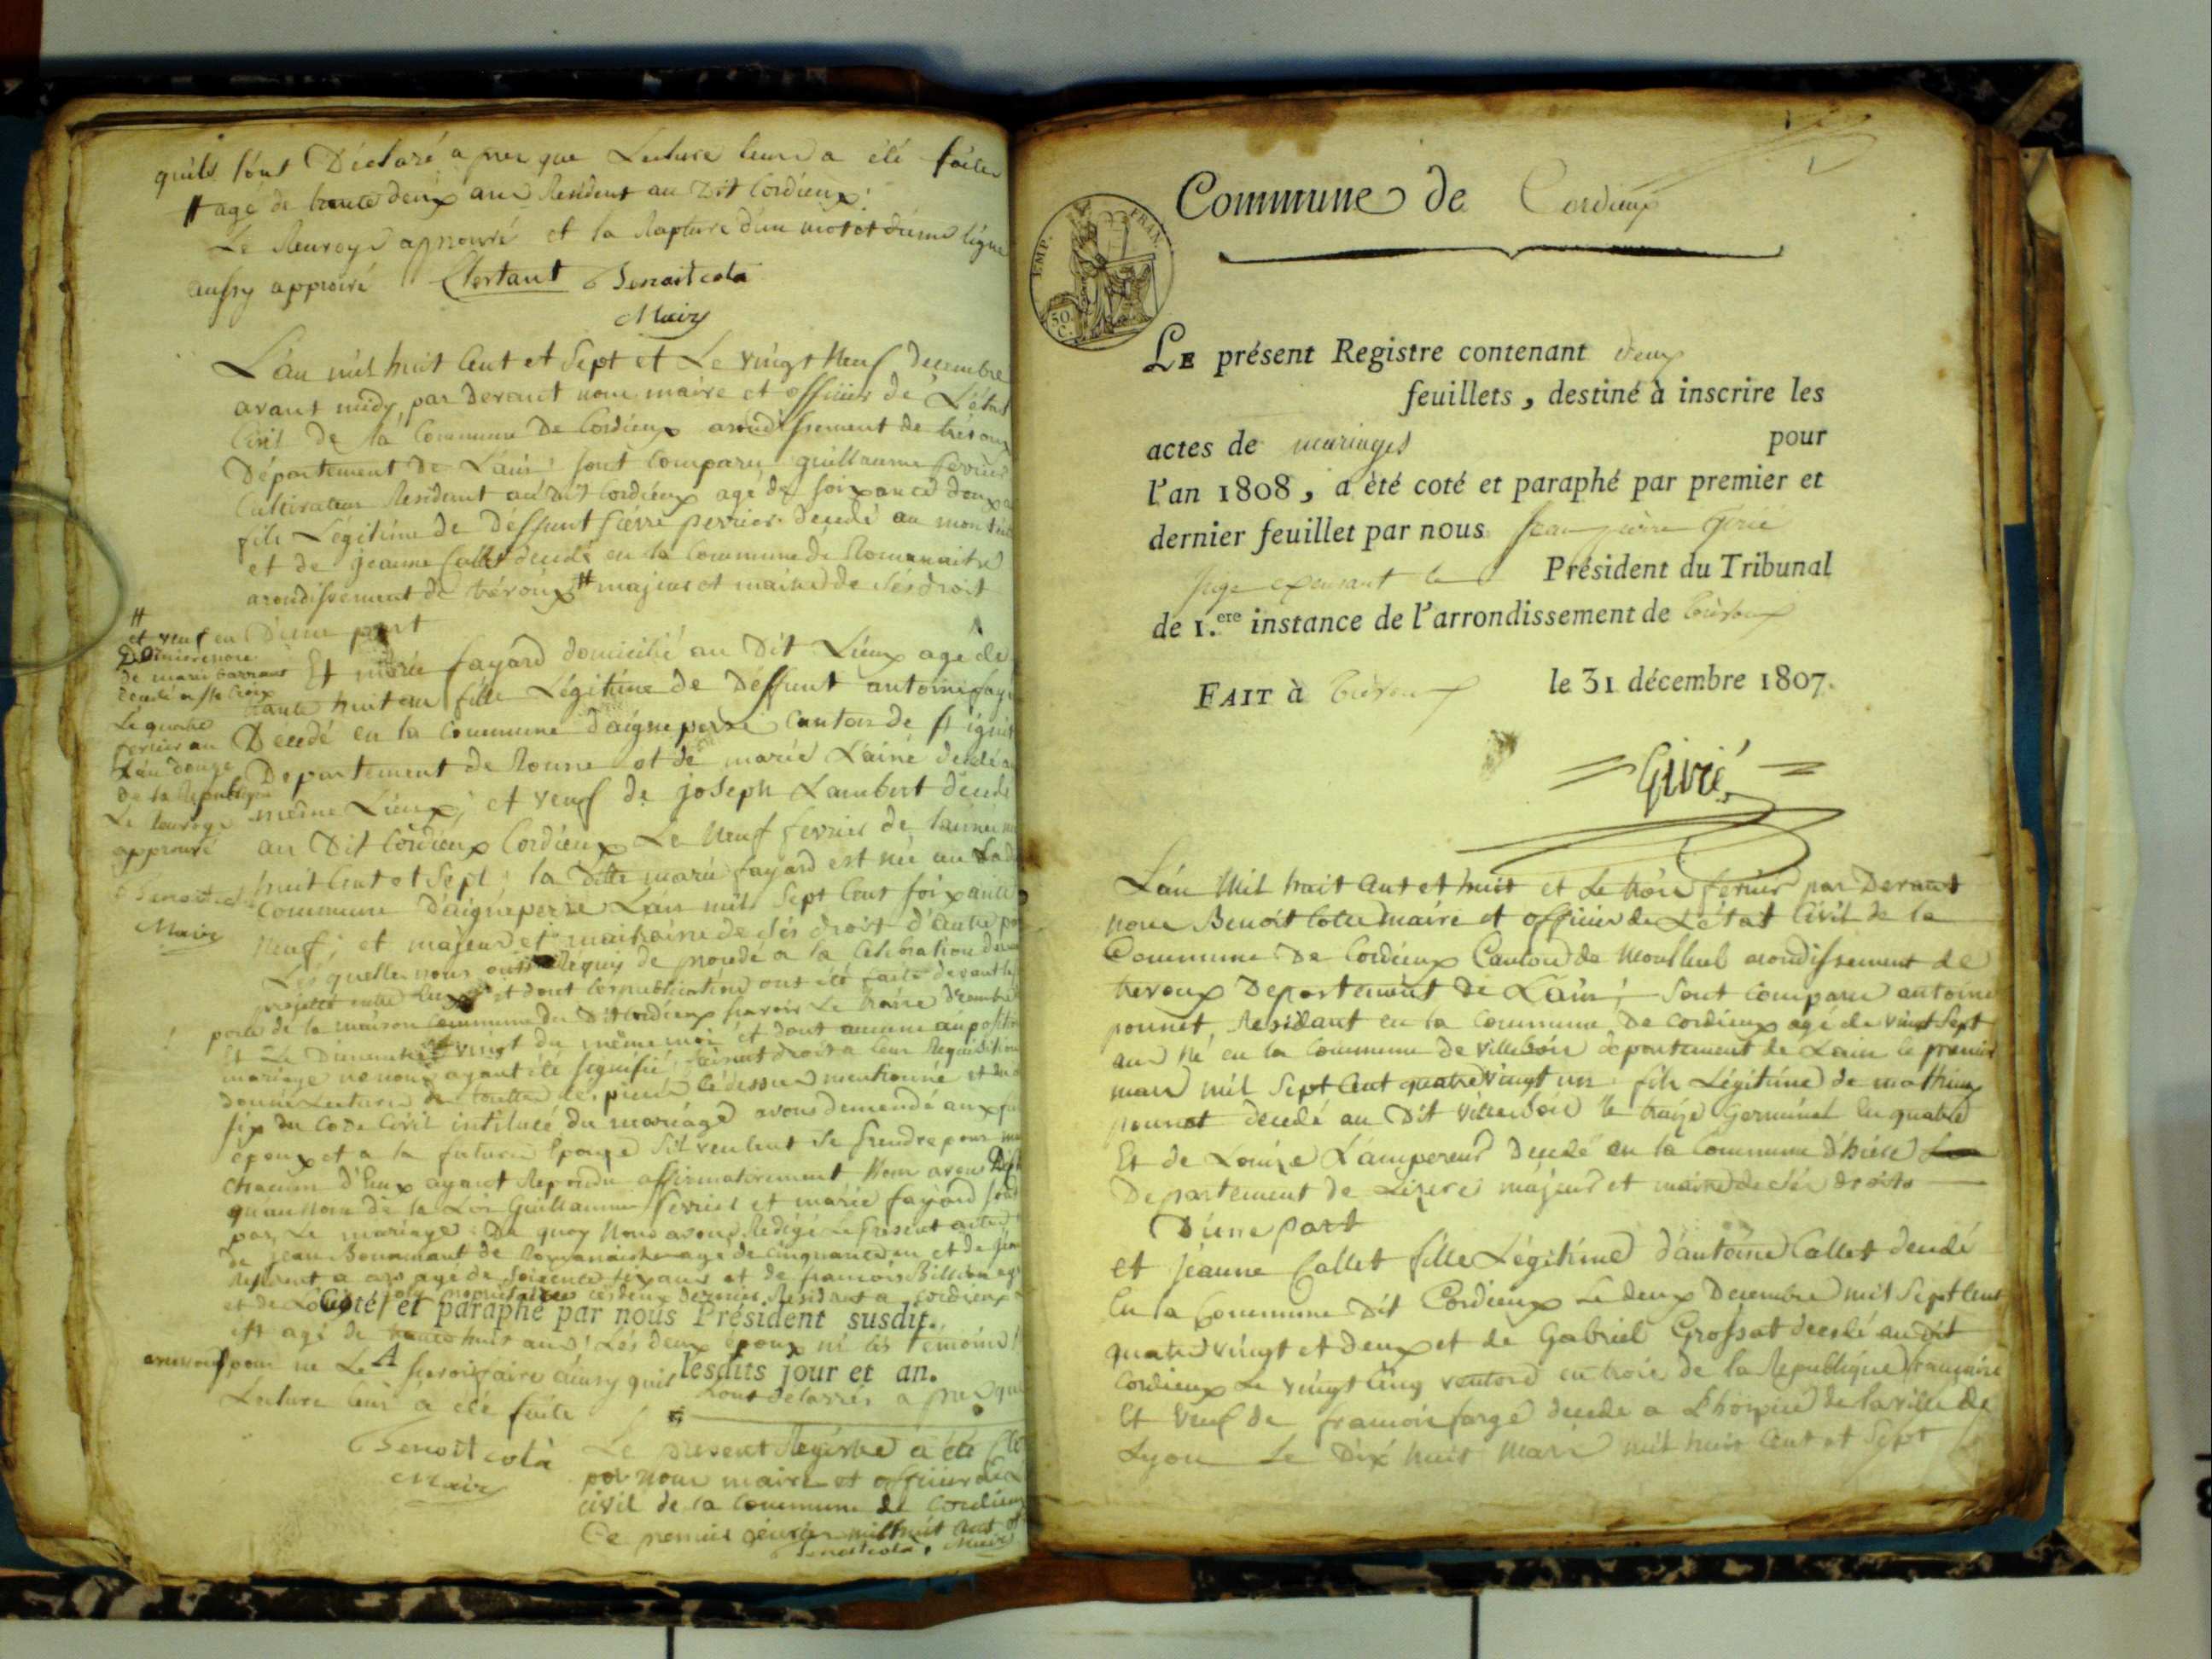 quils sont Déclaré a pres que Lecture leur a été faite
# agé de trente deux ans Resident au Dit Cordieux
Le Renvoye approuvé et la Rapture d'un mot et d'une ligne
aussy approuvé Chertant Benoit cola
Maire
L'an mil huit Cent et Sept et Le vingt Neuf decembre
avant midy, par Devant nous maire et officier de L'état
Civil de la Commune De Cordieux arondissement de trévoux
Département de L'ain; sont Comparu guillaume ferrier
Cultivateur Residant au Dit Cordieux agé de soixante deux
fils Légitime de Deffunt pierre perrier decedé au
et de jeanne Callet decedé en la Commune de Romanaiche
arondissement de trévoux # majeur et maitre de Ses droit
D'une part
#
et veuf en
de marie
Le quatre
fevrier an
L'an douze
De la Republique
Le renvoye
approuvé
Benoit
Maire
Et marie fayard domicilié au Dit Lieux agé de
trante huit ans fille Légitime de Deffunt antoine fayard
Decedé en la Commune d'aigueperse Canton de
Departement de Ronne et de marie L'ainé decedé au
même Lieux; et veuf de joseph Lambert décedé
au Dit Cordieux Cordieux Le Neuf fevrier de l'année mil
huit Cent et Sept; la Ditte marie fayard est née au
Commune D'aigueperse L'an mil Sept Cent soixante
Neuf; et majeur et maitraine de ses droit d'autre part
Lesquelles nous ont Requis de procedé a la Celebration du
projetté entre Eux et dont les publication ont été faite devant la
porte de la maison Commune du Dit Cordieux savoir Le traise Decembre
Et Le Dimanche vingt du même moi et dont aucune aupposition
mariage ne nous ayant été signifié; faisant droit a leur Requisition
donné Lecture de touttes les pieces cidessus mentionné et du
six du Code Civil intitulé du mariage avons demendé aux futur
epoux et a la future Epouze s'il veulent se prendre pour mari
chacun d'Eux ayant Repondu affirmativement Nous avons
quau nom de la Loi Guillaume ferrier et marie fayard sont
par Le mariage: De quoy Nous avons Redigé Le present acte
de jean Bonamant de Romanaiche agé de cinquante an et de
Resident a ars agé de soixente six ans et de francois Billion
et de Louis joly proprietaires ces deux dernier Resident a Cordieux
Coté et paraphé par nous Président susdit.
est agé de trante huit ans; Les deux epoux ni les temoins
pour ne Le savoir faire Ainsy quil lesdits jour et an.
A
sont declarés a pres que
Lecture leur a été faite
Benoit cola
Maire
Le present Registre a été Clo
par nous maire et officier de
civil de la Commune de Cordieux
Ce premier janvier mil huit Cent
Benoit cola, Maire
Commune de Cordieux
EMP. FRAN.
50 C.
LE présent Registre contenant deux
feuillets, destiné à inscrire les
actes de mariages pour
l'an 1808, a été coté et paraphé par premier et
dernier feuillet par nous jean pierre Givié
juge expensant le Président du Tribunal
de 1.ere instance de l'arrondissement de trévoux
FAIT à trévoux le 31 décembre 1807.
= Givié =
L'an Mil huit Cent et huit et Le trois fevrier par Devant
nous Benoit Colla maire et officier de L'état Civil de la
Commune De Cordieux Canton de Montluel arondissement de
trevoux Departement de L'ain; sont comparu antoine
ponnet Residant en la Commune De Cordieux agé de vingt sept
ans né en la Commune de villeboie departement de Lain le premier
mars mil Sept Cent quatre vingt un fils Légitime de mathieu
ponnet decedé au Dit villeboie le traize Germinal En quatre
Et de Louize L'ampereur decedé en la Commune d'hiere
Departement de Lizere majeur et maitre de ses droits
D'une part
et jeanne Callet fille Légitime d'antoine Callet decedé
En la Commune Dit Cordieux Le deux Decembre mil Sept Cent
quatre vingt et deux et de Gabriel Grossat decedé au Dit
Cordieux Le vingt Cinq ventose en trois de la Republique francaise
Et veuf de francois farge decedé a L'hospice de la ville de
Lyon Le Dix huit Mars mil huit Cent et Sept